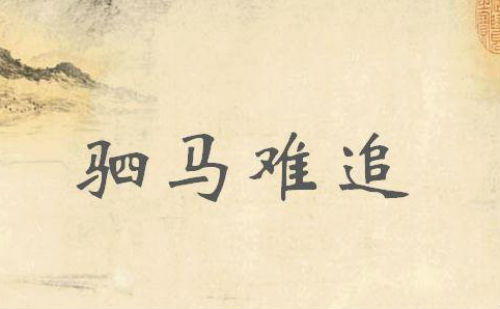 驷马难追